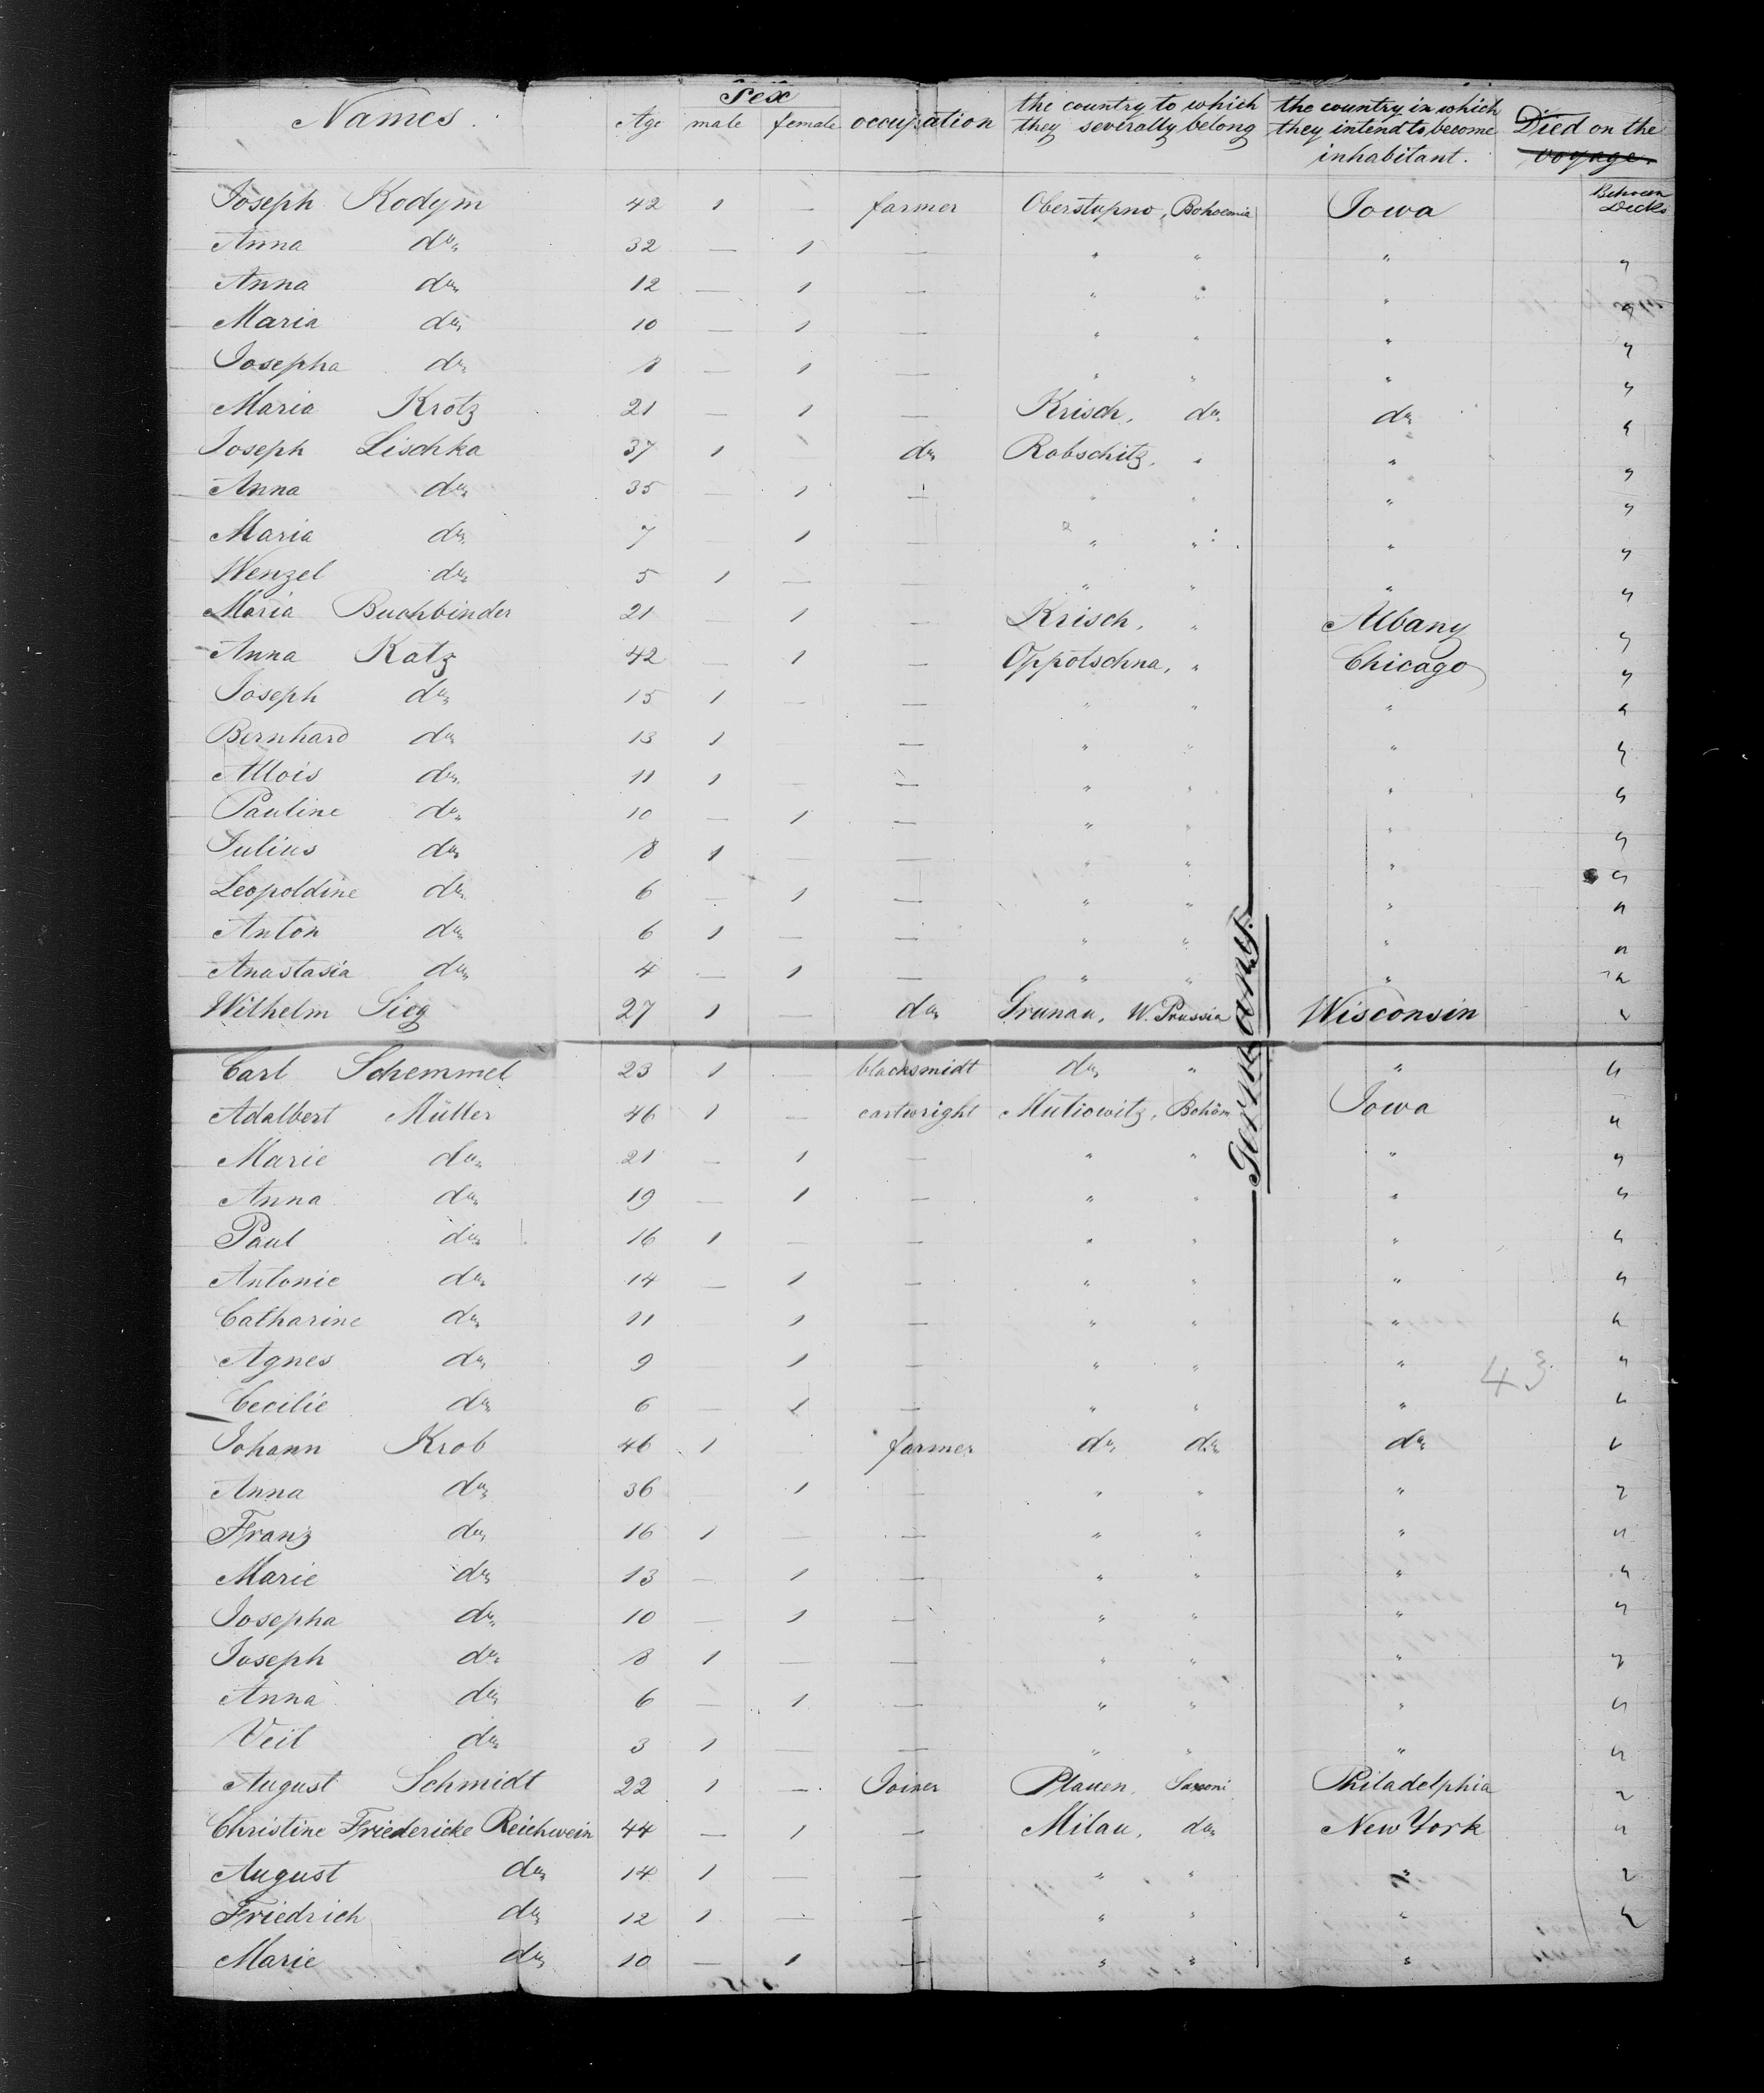 Names. Age Sex male female occupation the country to which they severally belong the country in which they intend to become inhabitant. Died on the voyage.
Joseph Kodym 42 1 — farmer Oberstupno, Bohoemia Iowa Between Decks
Anna do 32 — 1 — " " " "
Anna do 12 — 1 — " " " "
Maria do 10 — 1 — " " " "
Josepha do 8 — 1 — " " " "
Maria Krotz 21 — 1 — Krisch, do do "
Joseph Lischka 37 1 — do Robschitz, " " "
Anna do 35 — 1 — " " " "
Maria do 7 — 1 — " " " "
Wenzel do 5 1 — — " " " "
Maria Buchbinder 21 1 — Krisch, " Albany "
Anna Katz 42 — 1 — Oppotschna, " Chicago "
Joseph do 15 1 — — " " " "
Bernhard do 13 1 — " " " "
Allois do 11 1 — — " " " "
Pauline do 10 — 1 — " " " "
Julius do 8 1 — — " " " "
Leopoldine do 6 — 1 — " " " "
Anton do 6 1 — — " " " "
Anastasia do 4 — 1 — " " " "
Wilhelm Sieg 27 1 — do Grunau, W. Prussia Wisconsin "
Carl Schemmel 23 1 — blacksmidt do " " "
Adalbert Müller 46 1 — cartwright Mutiowitz, Bohöm Iowa "
Marie do 21 — 1 — " " " "
Anna do 19 — 1 — " " " "
Paul do 16 1 — — " " " "
Antonie do 14 — 1 — " " " "
Catharine do 11 1 — " " " "
Agnes do 9 1 — " " " "
Cecilie do 6 — 1 — " " " "
Johann Krob 46 1 farmer do do do "
Anna do 36 1 — " " " "
Franz do 16 1 — — " " " "
Marie do 13 — 1 — " " " "
Josepha do 10 — 1 — " " " "
Joseph do 8 1 — — " " " "
Anna do 6 — 1 — " " " "
Veit do 3 1 — — " " " "
August Schmidt 22 1 — Joiner Plauen, Saxoni Philadelphia "
Christine Friedericke Reichwein 44 — 1 — Milau, do New York "
August do 14 1 — — " " " "
Friedrich do 12 1 — — " " " "
Marie do 10 — 1 — " " "
Germany.
43